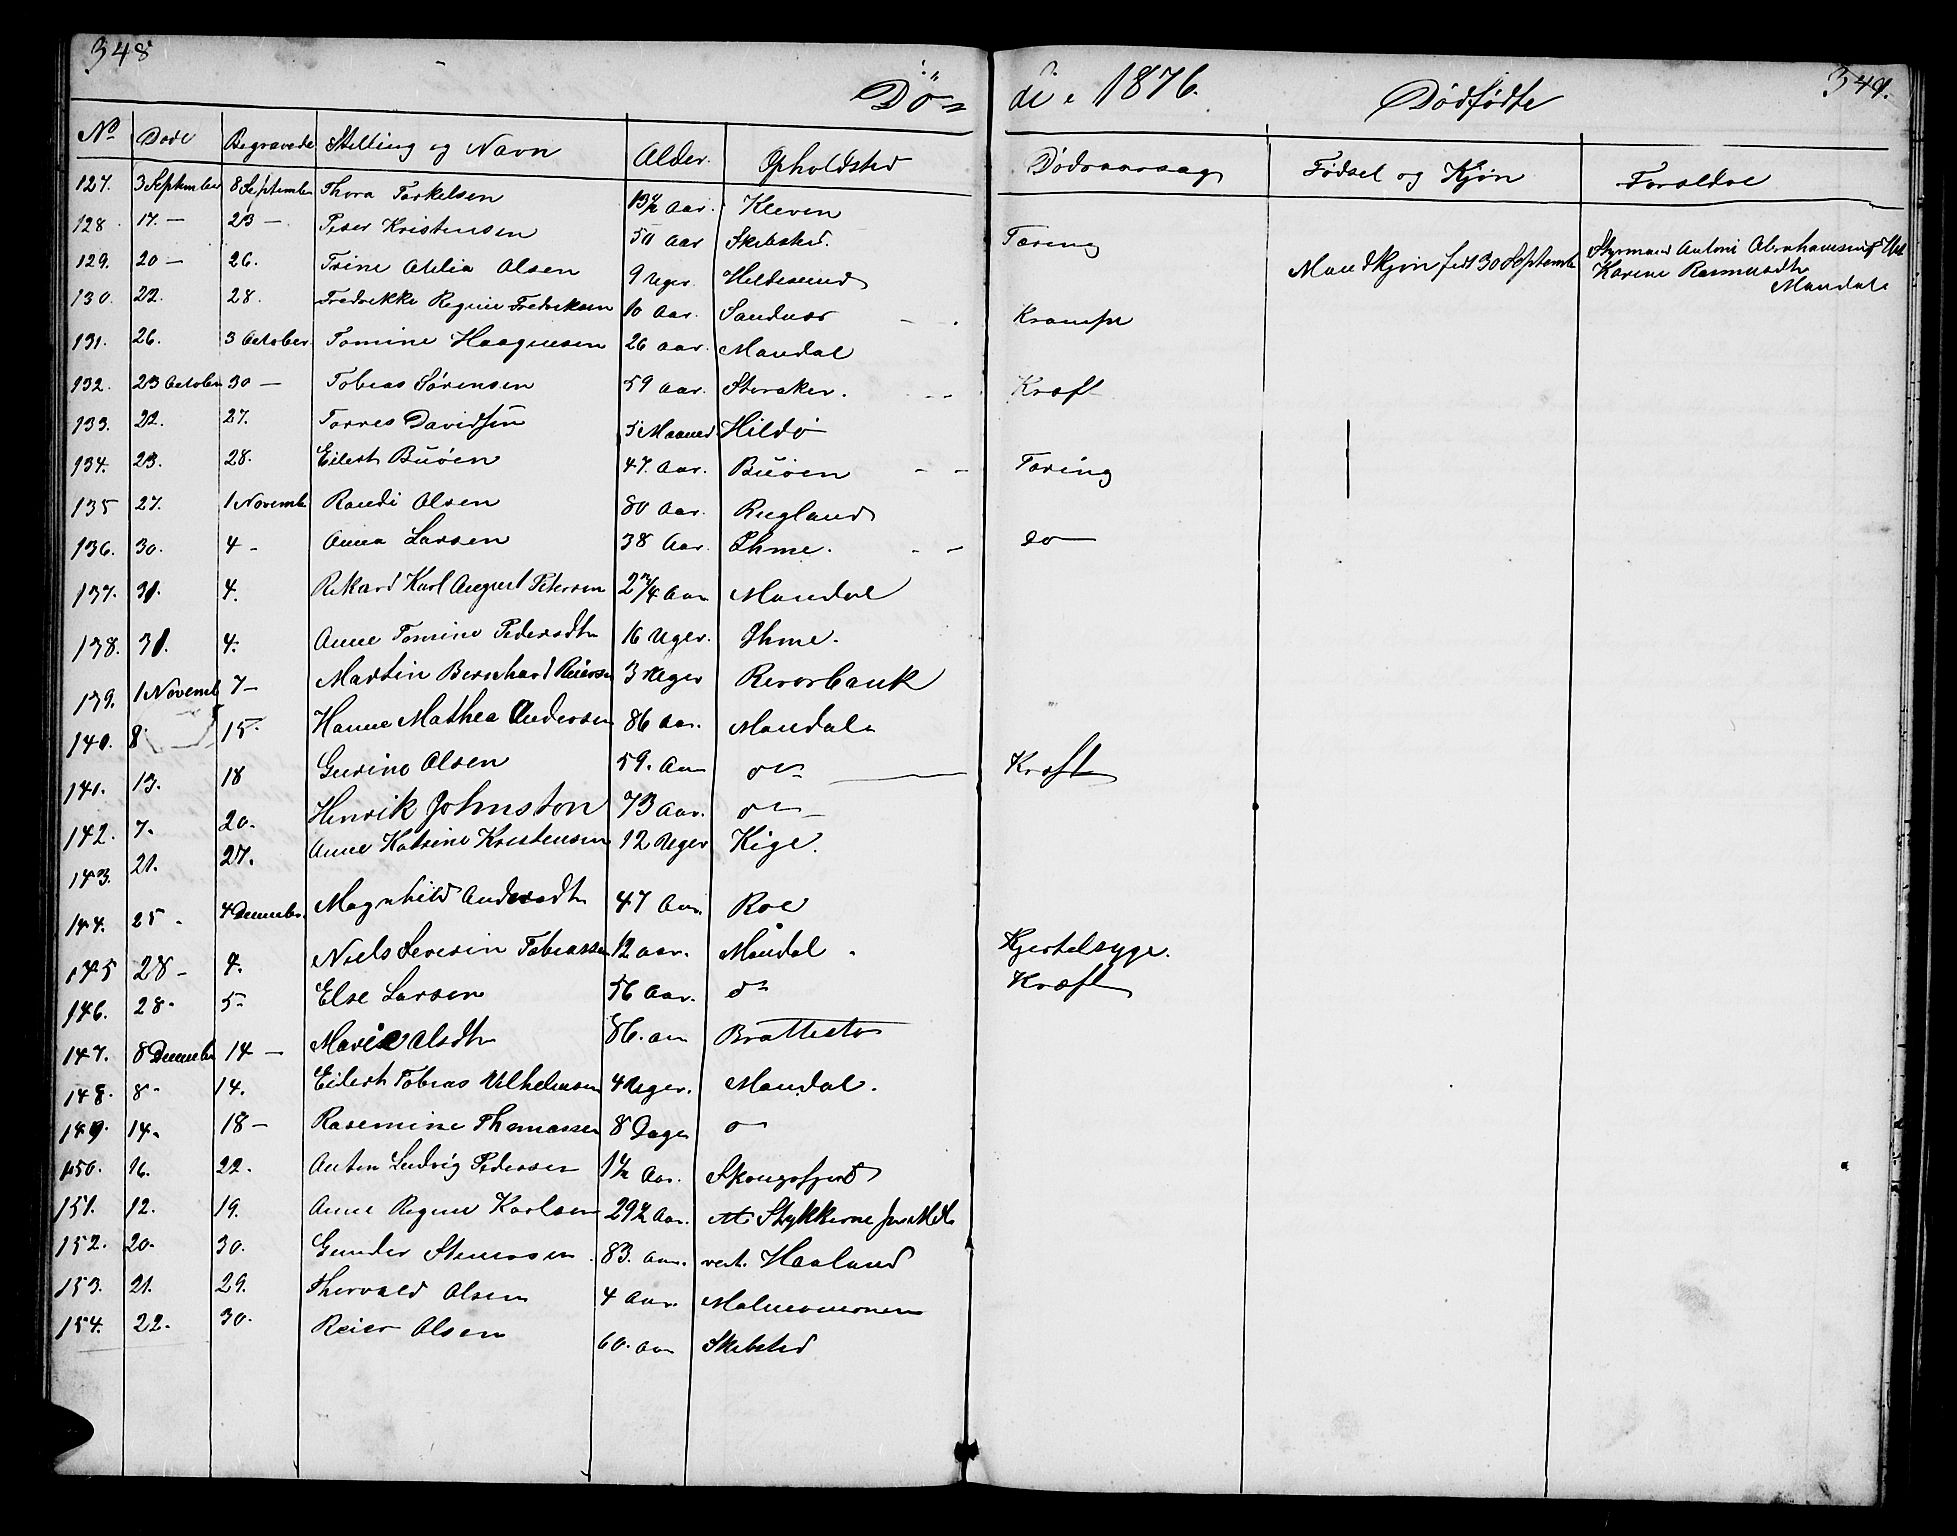 348
Dø- de 1876. Dødfødte 349.
No Døde Begravede Stilling og Navn Alder. Opholdsted Dødsaarsag Fødsel og Kjøn Forældre
127. 3 September 8 September Thora Torkelsen 13½ Aar. Kleven
128. 17. — 23 — Peder Kristensen 50 Aar Skibsted. Tæring
Mandkjøn født 30 September Styrmand Antoni Abrahamsen &
Karine Rasmusdtr
Mandal
129. 20 — 26. Trine Atelia Olsen 9 Uger Hildesund
130. 22. 28. Fredrikke Regine Fredriksen 10 Aar. Sandnæs - . Krampe
131. 26. 3 October. Tomine Haagensen 26 Aar. Mandal
132. 23 October 30 — Tobias Sørensen 59 Aar. Storaker. Kræft
133. 22. 27. Torres Davidsen 5 Maaned Hildø
134. 23. 28. Eilert Buøen 47. Aar. Buøen - - Tæring
135 27. 1 Novemb Randi Olsen 80 Aar. Rugland
136. 30. 4 - Anna Larsen 38 Aar. Ihme. - - do
137. 31. 4. Rikard Karl August Petersen 2¾ Aar Mandal
138. 31. 4. Anne Tomine Pedersdtr 16 Uger. Ihme.
139. 1 Novemb 7 - Martin Bernhard Reiersen 3 Uger Rivorbank
140. 8. 15. Hanne Mathea Andersen 86 Aar. Mandal
141. 13. 18 Gurine Olsen 59. Aar do Kræft
142. 7. 20. Henrik Johnston 73 Aar. do
143. 21. 27. Anne Katrine Kristensen 12 Uger Kige.
144. 25. 4 December. Magnhild Andersdtr 47 Aar. Roe
145 28 - 4. Niels Severin Tobiassen 12 Aar. Mandal . Kjertelsyge.
146. 28. 5. Else Larsen 56 Aar. do Kræft
147. 8 December 14 — Marie Olsdtr 86. Aar Brattestø
148. 8. 14. Eilert Tobias Vilhelmsen 4 Uger. Mandal.
149. 14. 18 — Rasemine Thomassen 8 Dage do
150. 16. 22. Anton Ludvig Pedersen 1½ Aar. Skongsfjord
151. 12. 19. Anne Regine Karlsen 29½ Aar. Stykkerne
152. 20. 30. Gunder Stenersen 83. Aar. vest. Haaland
153. 21. 29. Thorvald Olsen 4 Aar.
154. 22. 30. Reier Olsen 60. Aar Skibsted